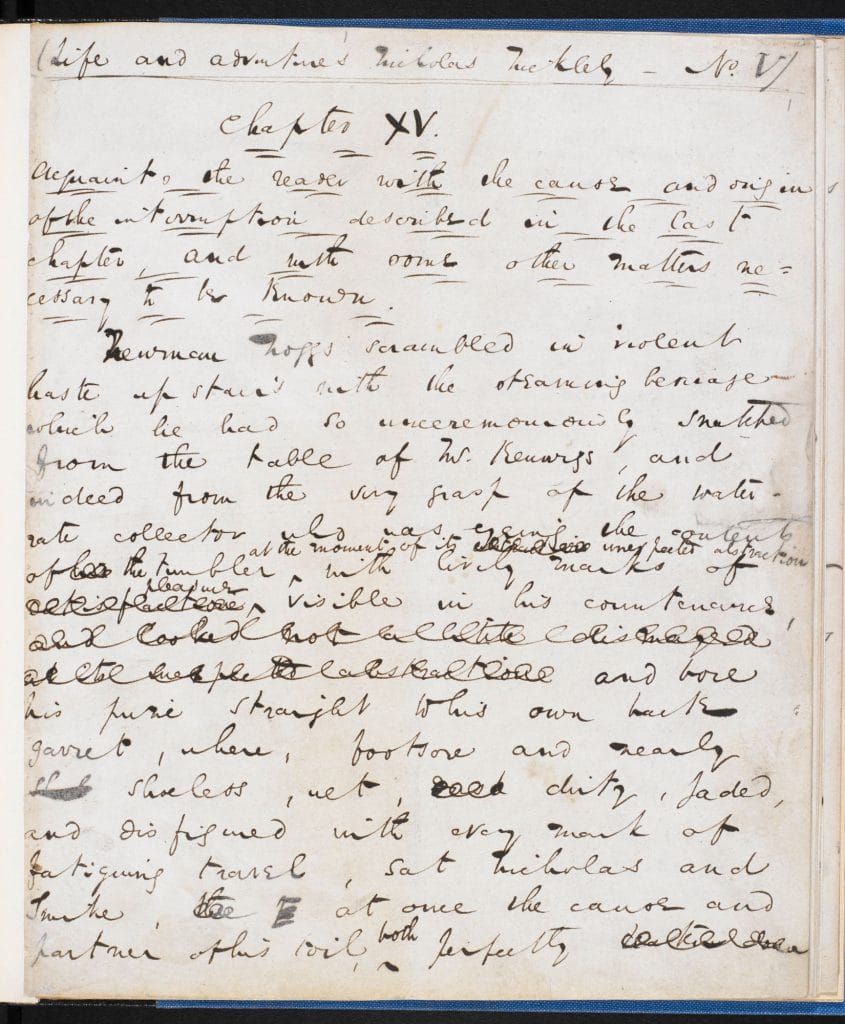 (Life and adventures Nicholas Nickleby – No. V)
Chapter XV.
Acquaints the reader with the cause and origin
of the interruption described in the last
chapter, and with some other matters ne=
cessary to be known.
Newman Noggs scrambled in violent
haste up stairs with the steaming beverage
which he had so unceremoniously snatched
from the table of Mr. Kenwigs, and
indeed from the very grasp of the water-
rate collector who was eyeing the contents
at the moment of it unexpected abstraction
of the tumbler, with lively marks of
pleasure
satisfaction visible in his countenance,
and looked not a little dismayed
at the unexpected abstraction and bore
his prize straight to his own back
garret, where, footsore and nearly
shoeless, wet, dirty, jaded,
and disfigured with every mark of
fatiguing travel, sat Nicholas and
Smike, at once the cause and
both
partner of his toil, perfectly